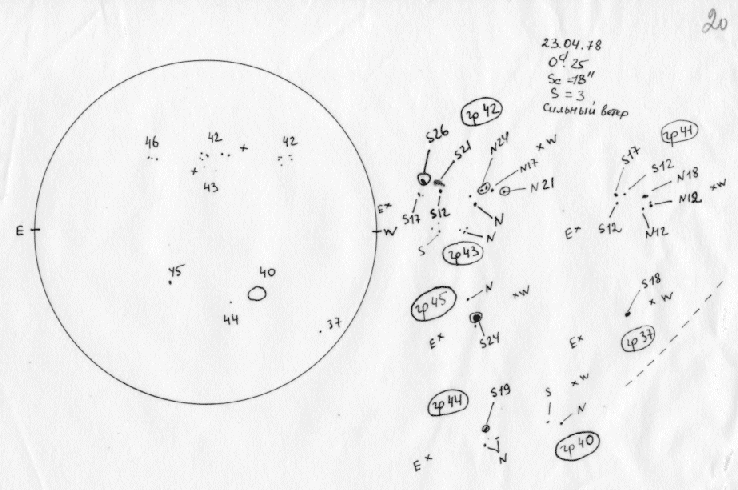 20
23.04.78
Sc = 18"
S = 3
Сильный ветер
46
42
x
42
x
43
E
W
45
40
44
37
гр 42
S26
S21
N24
x W
N17
N21
E x
S17
S12
N
S
N
гр 43
гр 41
S17
S12
N18
x W
N12
E x
S12
N12
гр 45
N
x W
E x
S24
S18
x W
E x
гр 37
гр 44
S19
E x
N
x W
S
N
гр 40